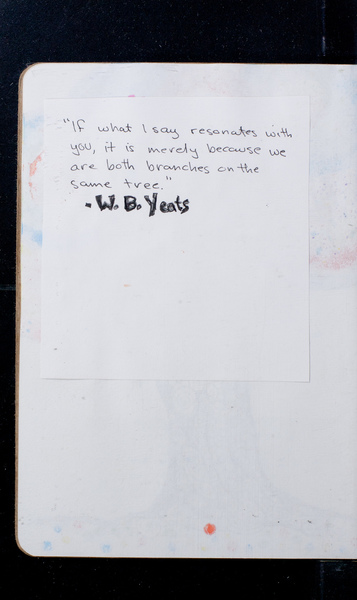 "If what I say resonates with
you, it is merely because we
are both branches on the
same tree."
- W. B. Yeats